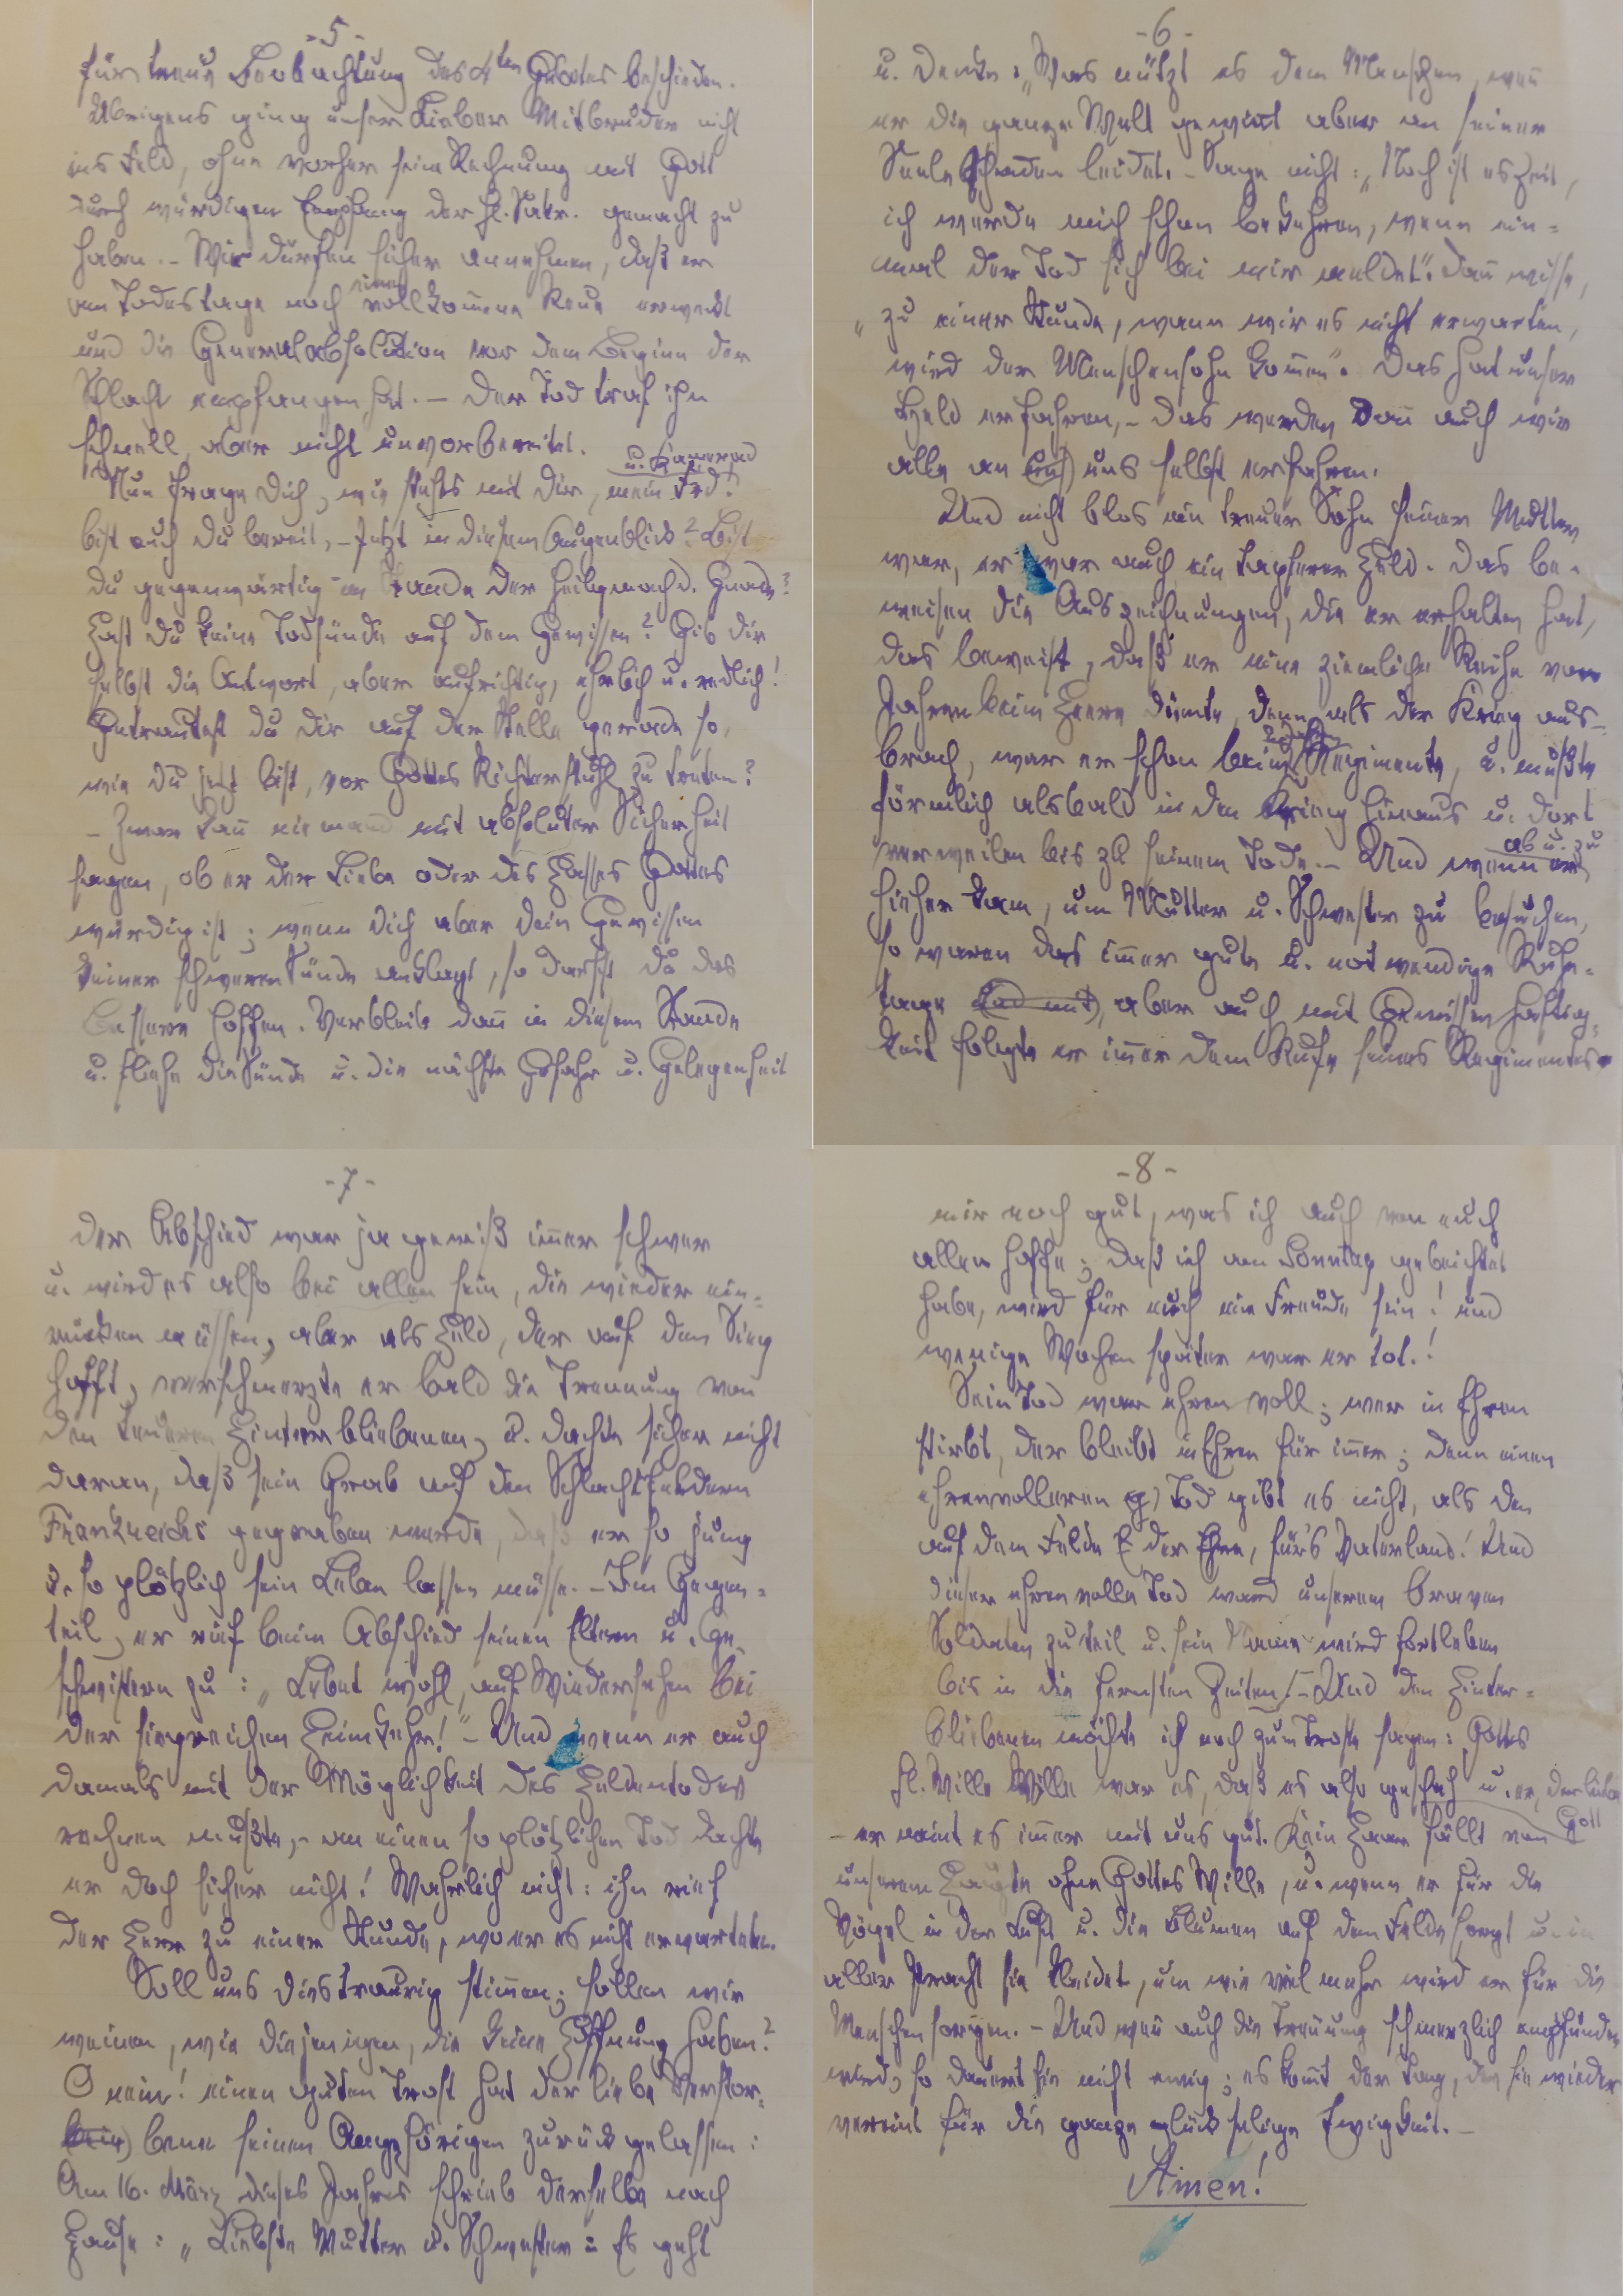 -5-
für treue Beobachtung des 4ten Gebotes beschieden.
Übrigens ging unser lieber Mitbruder nicht
ins Feld, ohne vorher seine Rechnung mit Gott
durch würdigen Empfang der hl. Sakr. gemacht zu
haben. - Wir dürfen sicher annehmen, daß er
am Todestage noch eine vollkom̄ene Reue erweckt
und die Generalabsolution vor dem Beginn der
Schlacht empfangen hat. - Der Tod traf ihn
schnell, aber nicht unvorbereitet.
u. Kamerad
Nun frage Dich, wie stehts mit Dir, mein Frd!
bist auch Du bereit, - jetzt in diesem Augenblick? Bist
Du gegenwärtig im Stande der heiligmachd. Gnade?
Hast Du keine Todsünde auf dem Gewissen? Gib Dir
selbst die Antwort, aber aufrichtig, ehrlich u. redlich!
Getrautest Du Dir auf der Stelle gerade so,
wie Du jetzt bist, vor Gottes Richterstuhl zu treten?
- Zwar kan̄ niemand mit absoluter Sicherheit
sagen, ob er der Liebe oder des Hasses Gottes
würdig ist; wenn Dich aber Dein Gewissen
keiner schweren Sünde anklagt, so darfst Du das
Bessere hoffen. Verbleibe dan̄ in diesem Stande
u. fliehe die Sünde u. die nächste Gefahr u. Gelegenheit
-6-
u. denke: „Was nützt es dem Menschen, wen̄
er die ganze Welt gewin̄t aber an seiner
Seele Schaden leidet. - Sage nicht: „Noch ist es Zeit,
ich werde mich schon bekehren, wenn ein-
mal der Tod sich bei mir meldet". Dan̄ wisse,
„zu einer Stunde, wann wir es nicht erwarten,
wird der Menschensohn kom̄en". Das hat unser
Held erfahren, - das werden dan̄ auch wir
alle an uns selbst erfahren.
Und nicht blos ein treuer Sohn seiner Mutter
war, er war auch ein tapferer Held. Das be-
weisen die Auszeichnungen, die er erhalten hat,
das beweist, daß er eine ziemliche Reihe von
Jahren beim Heere diente, denn als der Krieg aus-
brach, war er schon beim Regimente, u. mußte
förmlich alsbald in den Krieg hinaus u. dort
verweilen bis zu seinem Tode. - Und wenn er ab u. zu
hieher kam, um Mutter u. Schwester zu besuchen,
so waren das im̄er gute u. notwendige Ruhe-
tage, aber auch mit Gewissenhaftig-
keit folgte er im̄er dem Rufe seines Regimentes.
-7-
Der Abschied war ja gewiß im̄er schwer
u. wird es also bei allen sein, die wieder ein-
rücken müssen, aber als Held, der auf den Sieg
hofft, verschmerzte er bald die Trennung von
den teueren Hinterbliebenen, u. dachte sicher nicht
daran, daß sein Grab auf den Schlachtfeldern
Frankreichs gegraben werde, daß er so jung
u. so plötzlich sein Leben lassen müsse. - Im Gegen-
teil, er rief beim Abschied seinen Eltern u. Ge-
schwistern zu: „Lebet wohl, auf Wiedersehen bei
der siegreichen Heimkehr!" - Und wenn er auch
damals mit der Möglichkeit des Heldentodes
rechnen mußte, - an einen so plötzlichen Tod dachte
er doch sicher nicht! Wahrlich nicht: ihn rief
der Herr zu einer Stunde, wo er es nicht erwartete.
Soll uns dies traurig stim̄en; sollen wir
weinen, wie diejenigen, die keine Hoffnung haben?
O nein! einen guten Trost hat der liebe Verstor-
bene seinen Angehörigen zurückgelassen:
Am 16. März dieses Jahres schrieb derselbe nach
Hause: „Liebste Mutter u. Schwester: Es geht
-8-
mir noch gut, was ich auch von euch
allen hoffe; daß ich am Sonntag gebeichtet
habe, wird für euch eine Freude sein! und
wenige Wochen später war er tot.!
Sein Tod war ehrenvoll; wer in Ehren
stirbt, der bleibt in Ehren für im̄er; denn einen
ehrenvolleren Tod gibt es nicht, als den
auf dem Felde der Ehre, für's Vaterland! Und
dieser ehrenvolle Tod ward unserem braven
Soldaten zuteil u. sein Name wird fortleben
bis in die fernsten Zeiten! - Und den Hinter-
bliebenen möchte ich noch zum Troste sagen: Gottes
hl. Wille Wille war es, daß es also geschah u. er, der liebe Gott
- er meint es im̄er mit uns gut. Kein Haar fällt von
unserem Haupte ohne Gottes Wille, u. wenn er für die
Vögel in der Luft u. die Blumen auf dem Felde sorgt u. in
aller Pracht sie kleidet, um wie viel mehr wird er für die
Menschen sorgen. - Und wen̄ auch die Trennung schmerzlich empfunden
wird, so dauert sie nicht ewig; es kom̄t der Tag, der sie wieder
vereint für die ganze glückselige Ewigkeit. -
Amen!